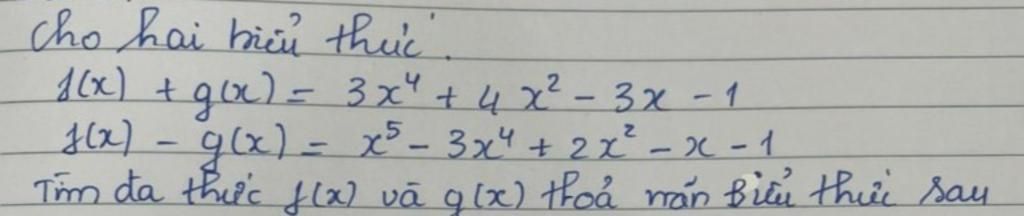 Cho hai biểu thức.
f(x) + g(x) = 3x⁴ + 4x² - 3x - 1
f(x) - g(x) = x⁵ - 3x⁴ + 2x² - x - 1
Tìm đa thức f(x) và g(x) thoả mãn Biểu thức sau